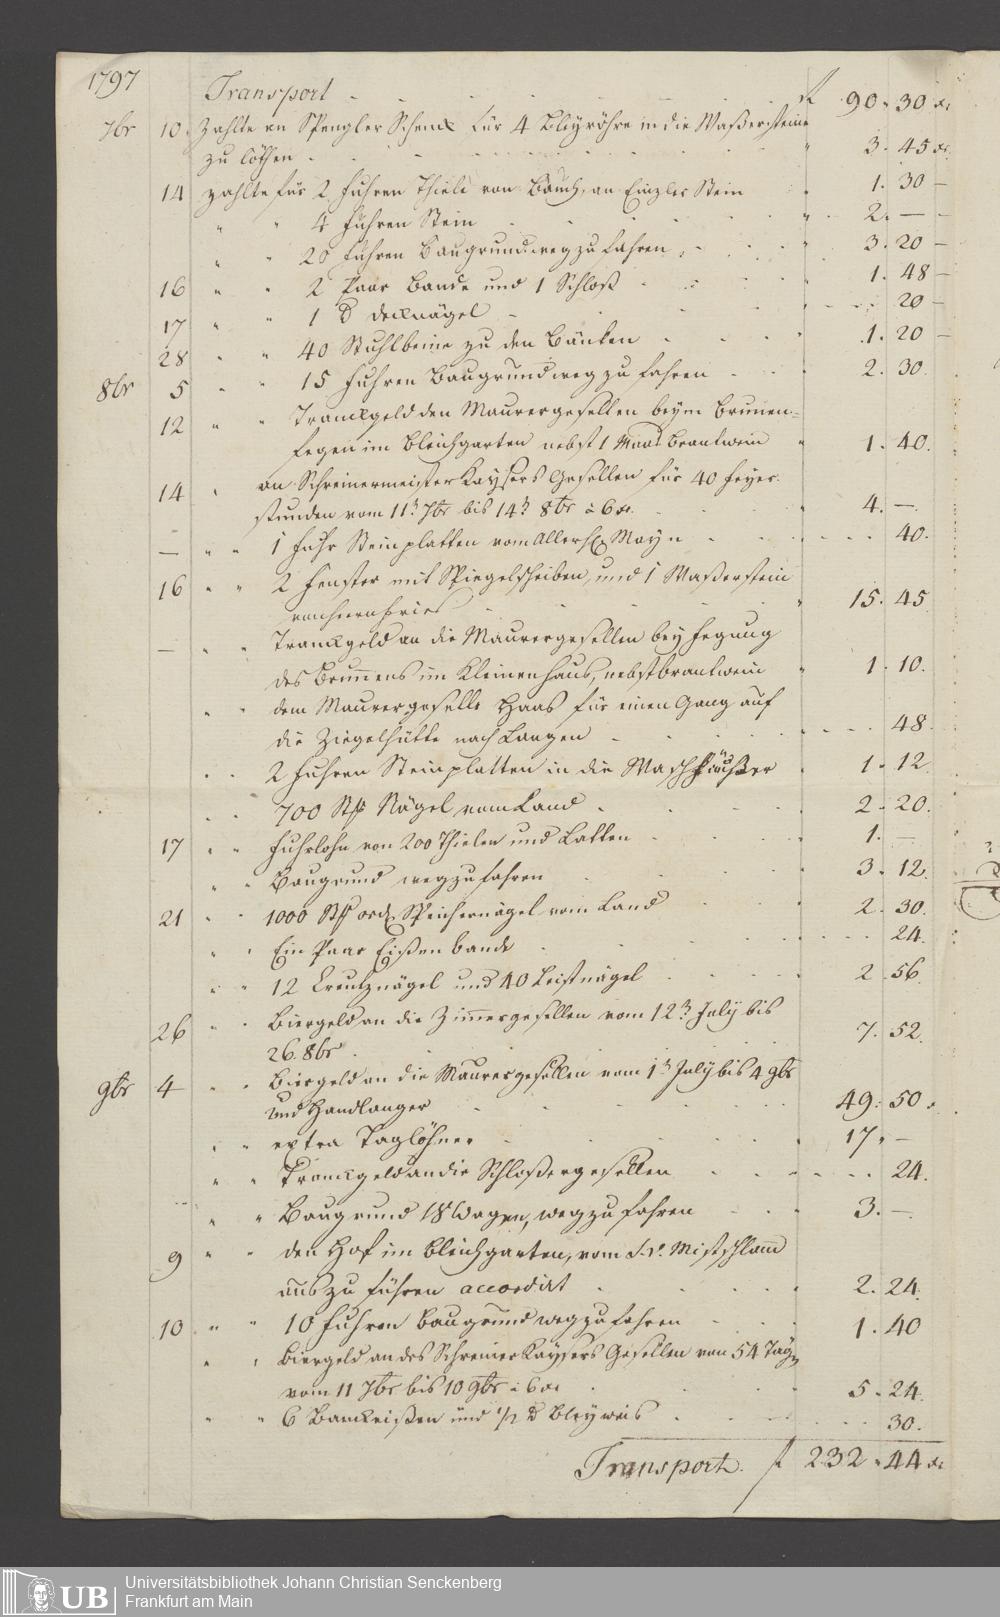 1797
Transport f 90. 30 xr
7br 10. Zahlte an Spengler Schenck für 4 Bleyröhre in die Waßersteine
zu löthen 3. 45 xr
14 zahlte für 2 Fuhren Thiele von Bauch, an Einzler Stein 1. 30 —
" " 4 Fuhren Stein 2. — —
" " 20 Fuhren Baugrund weg zu fahren 3. 20 —
16 " " 2 Paar Bande und 1 Schloß 1. 48 —
17 " " 1 ℔ decknägel 20 —
28 " " 40 Stuhlbeine zu den Bänken 1. 20 —
8br 5 " " 15 Fuhren Baugrund weg zu fahren 2. 30.
12 " " Tranckgeld den Maurergesellen beym Brunnen-
fegen im Bleichgarten nebst 1 Maas Brantwein 1. 40.
14 " an Schreinermeister Kaysers Gesellen für 40 Feyer-
stunden vom 11t 7br bis 14t 8br à 6 xr. 4. —
— " " 1 Fuhr Steinplatten vom Mayn 40.
16 " " 2 Fenster mit Spiegelscheiben, und 1 Waßerstein
von Herrn Fries 15. 45
— " " Tranckgeld an die Maurergesellen bey Fegung
des Brunnens im Kleinen Haus, nebst brantwein 1. 10.
" " dem Maurergeselle Haas für einen Gang auf
die Ziegelhütte nach Langen 48.
" " 2 Fuhren Steinplatten in die Waschhäußer 1. 12
" " 700 Stk Nägel vom Land 2. 20.
17 " " Fuhrlohn von 200 Thielen und Latten 1. —
" " Baugrund weg zu fahren 3. 12.
21 " " 1000 Stk ord. Speichernägel vom Land 2. 30.
" " Ein Paar Eißen bande 24.
" " 12 Kreutznägel und 40 Leistnägel 2. 56
26 " " Biergeld an die Zimmergesellen vom 12t July bis
26. 8br 7. 52.
9br 4 " " Biergeld an die Maurergesellen vom 1t July bis 4 9br
und Handlanger 49. 50.
" " extra Taglöhner 17. —
" " Tranckgeld an die Schloßergesellen 24.
" " Baugrund 18 Wagen, weg zu fahren 3. —
9 " " den Hof im Bleichgarten, vom S.v. Mistschlam
aus zu führen accordirt 2. 24
10 " " 10 Fuhren Baugrund weg zu fahren 1. 40
" " Biergeld an des Schreiner Kaysers Gesellen von 54 Tägn
vom 11 7br bis 10 9br à 6 xr 5. 24
" " 6 Banckeißen und 1/2 ℔ Bleyweis 30.
Transport. f 232. 44 xr
UB Universitätsbibliothek Johann Christian Senckenberg
Frankfurt am Main